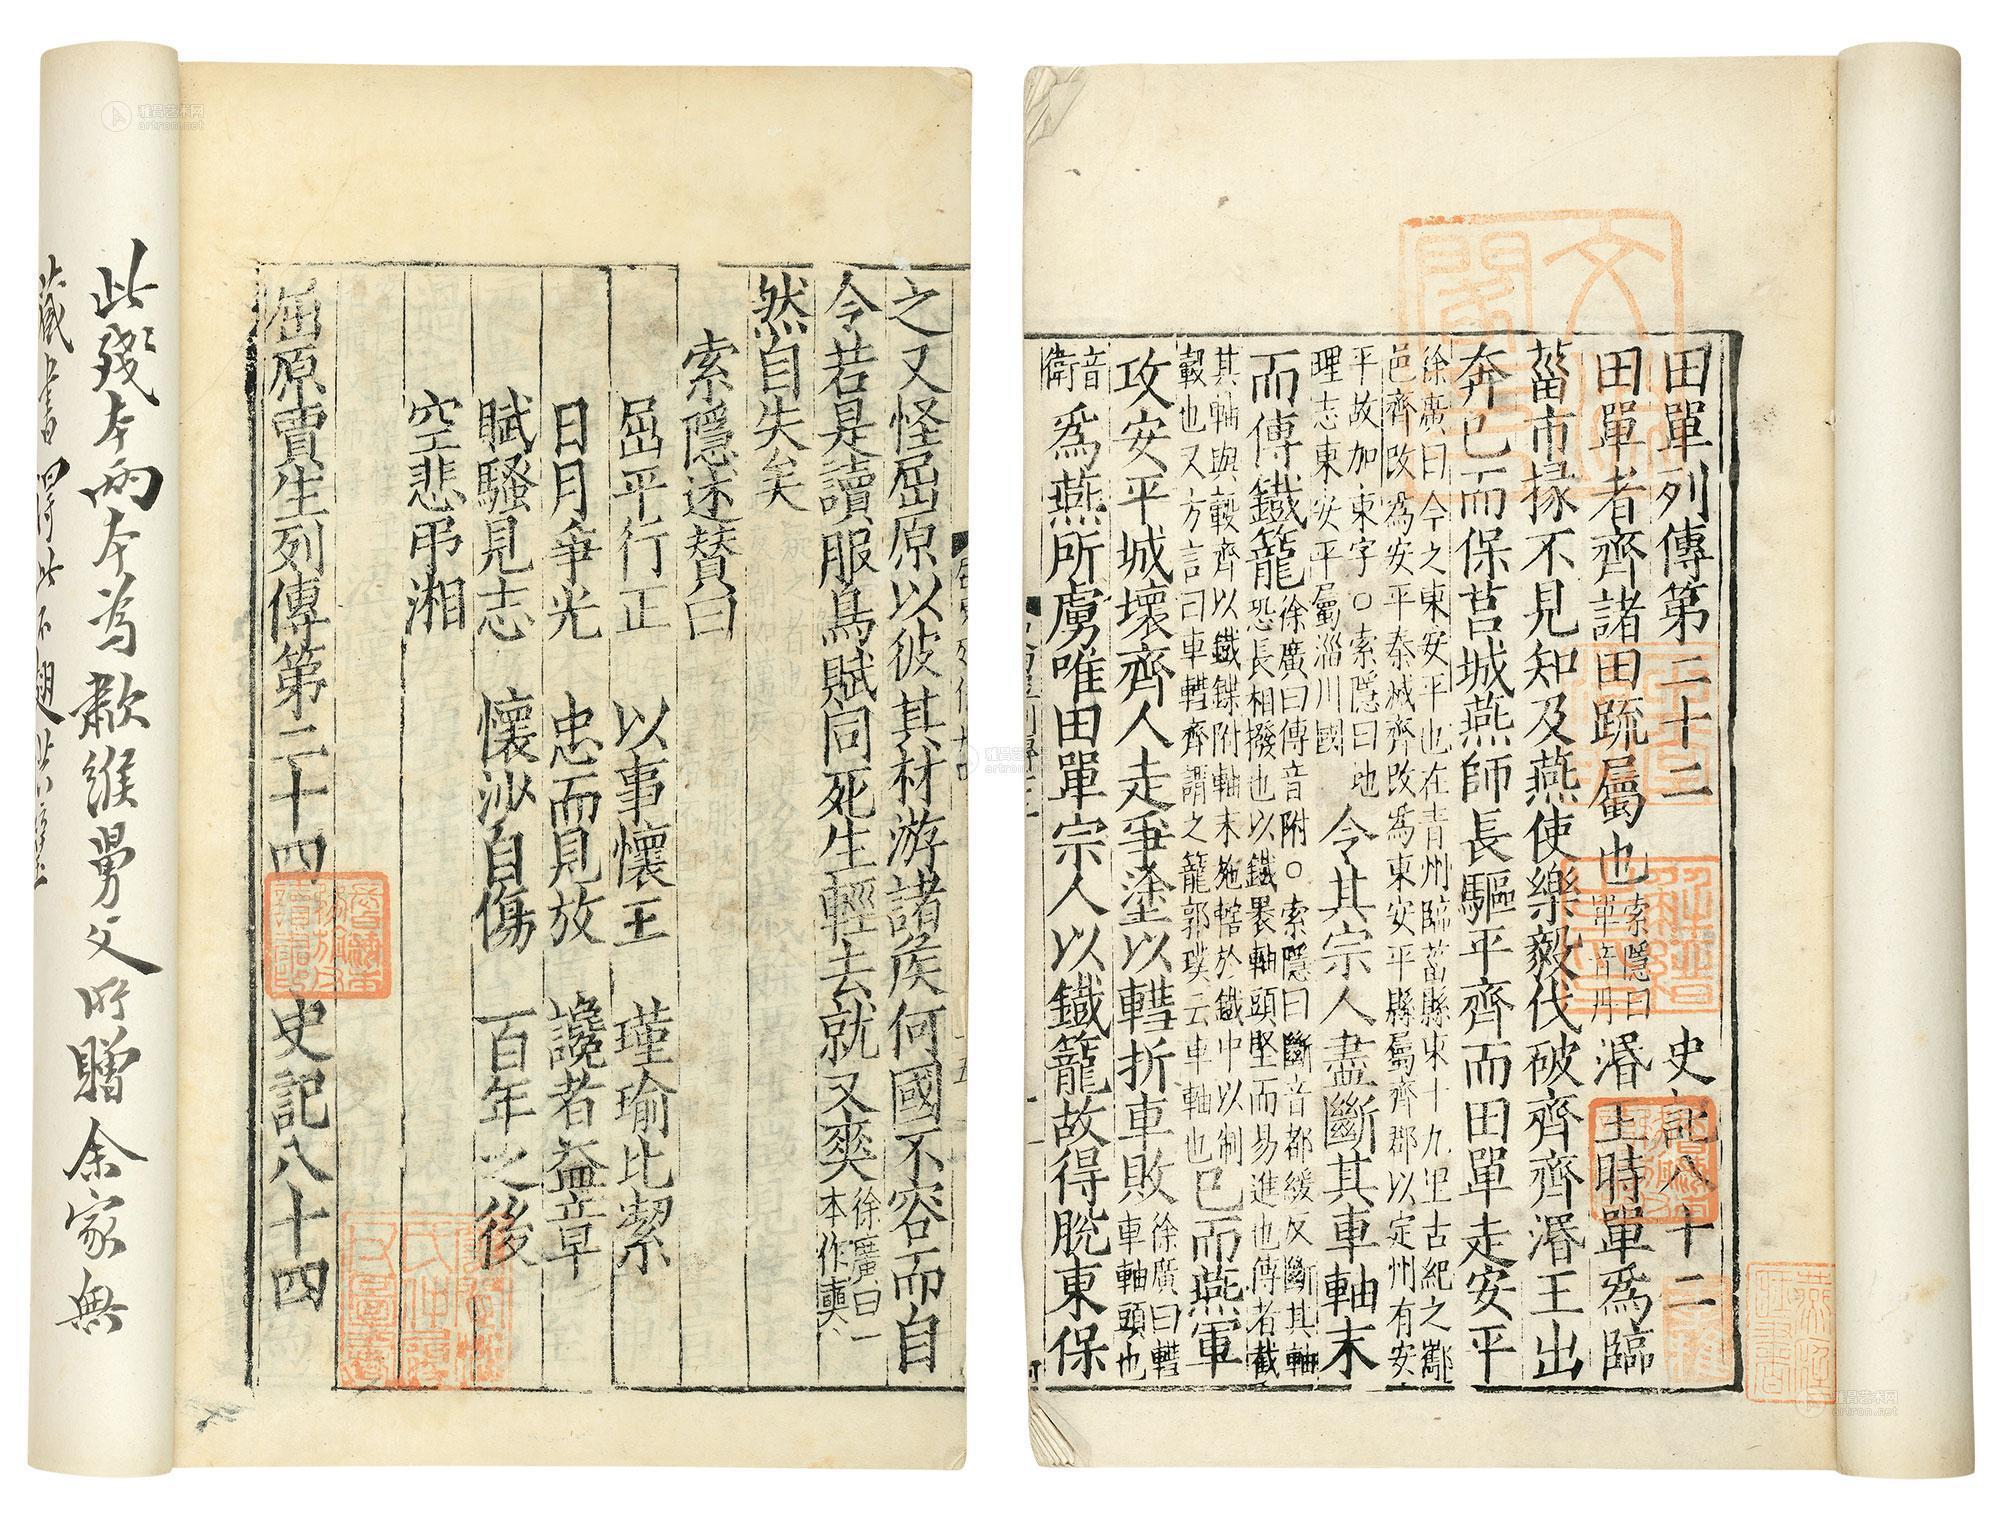 田單列傳第二十二 史記八十二
田單者齊諸田疏屬也索隱曰單音丹湣王時單爲臨
菑市掾不見知及燕使樂毅伐破齊齊湣王出
奔已而保莒城燕師長驅平齊而田單走安平
徐廣曰今之東安平也在青州臨菑縣東十九里古紀之酅
邑齊改爲安平秦滅齊改爲東安平縣屬齊郡以定州有安
平故加東字○索隱曰地
理志東安平屬淄川國
令其宗人盡斷其車軸末
而傅鐵籠
徐廣曰傅音附○索隱曰斷音都緩反斷其軸
恐長相撥也以鐵裹軸頭堅而易進也傅者截
其軸與轂齊以鐵鍱附軸末施轄於鐵中以制
轂也又方言曰車轊齊謂之籠郭璞云車軸也
已而燕軍
攻安平城壞齊人走爭塗以轊折車敗
徐廣曰轊
車軸頭也
音
衛
爲燕所虜唯田單宗人以鐵籠故得脫東保
之又怪屈原以彼其材游諸侯何國不容而自
令若是讀服鳥賦同死生輕去就又爽
徐廣曰一
本作奭
然自失矣
索隱述贊曰
屈平行正 以事懷王 瑾瑜比潔
日月爭光 忠而見放 讒者益章
賦騷見志 懷沙自傷 百年之後
空悲弔湘
屈原賈生列傳第二十四 史記八十四
此殘本兩本為歗緱舅父所贈余家無
藏書得此不翅
雅昌艺术网
artron.net